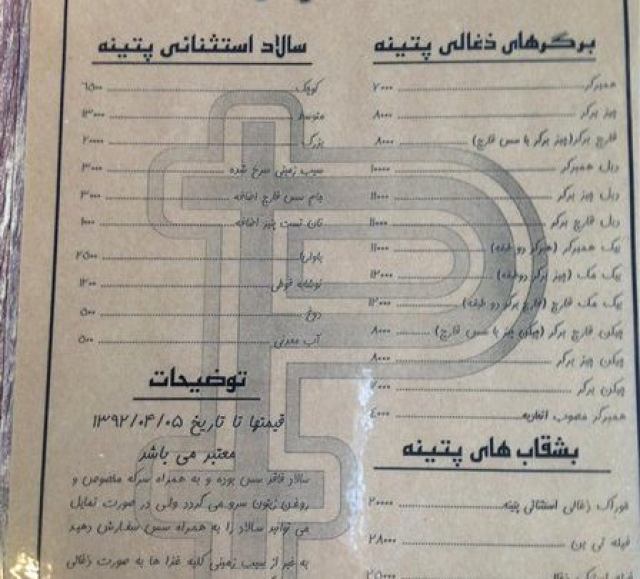 برگرهای ذغالی پتینه
همبرگر ۷۰۰۰
چیز برگر ۸۰۰۰
قارچ برگر(چیز برگر با سس قارچ) ۸۰۰۰
دبل همبرگر ۱۰۰۰۰
دبل چیز برگر ۱۱۰۰۰
دبل قارچ برگر ۱۱۰۰۰
بیگ همبرگر (همبرگر دو طبقه) ۱۱۰۰۰
بیگ مک (چیز برگر دوطبقه) ۱۲۰۰۰
بیگ مک قارچ (قارچ برگر دو طبقه) ۱۲۰۰۰
چیکن قارچ برگر (چیکن چیز با سس قارچ) ۸۰۰۰
چیکن چیز برگر ۸۰۰۰
چیکن برگر ۷۰۰۰
همبرگر مصوب اتحادیه ۴۰۰۰
بشقاب های پتینه
خوراک ذغالی استثنائی پتینه ۲۰۰۰۰
فیله تی بن ۲۸۰۰۰
۲۵۰۰۰
سالاد استثنائی پتینه
کوچک ۶۵۰۰
متوسط ۱۳۰۰۰
بزرگ ۲۰۰۰۰
سیب زمینی سرخ شده ۳۰۰۰
جام سس قارچ اضافه ۳۰۰۰
نان تست پنیر اضافه ۱۰۰۰
باواریا ۲۵۰۰
نوشابه قوطی ۱۲۰۰
دوغ ۵۰۰
آب معدنی ۵۰۰
توضیحات
قیمتها تا تاریخ ۱۳۹۲/۰۴/۰۵
معتبر می باشد
سالاد فاقد سس بوده و به همراه سرکه مخصوص و
روغن زیتون سرو می گردد ولی در صورت تمایل
می توانید سالاد را به همراه سس سفارش دهید
به غیر از سیب زمینی کلیه غذا ها به صورت ذغالی